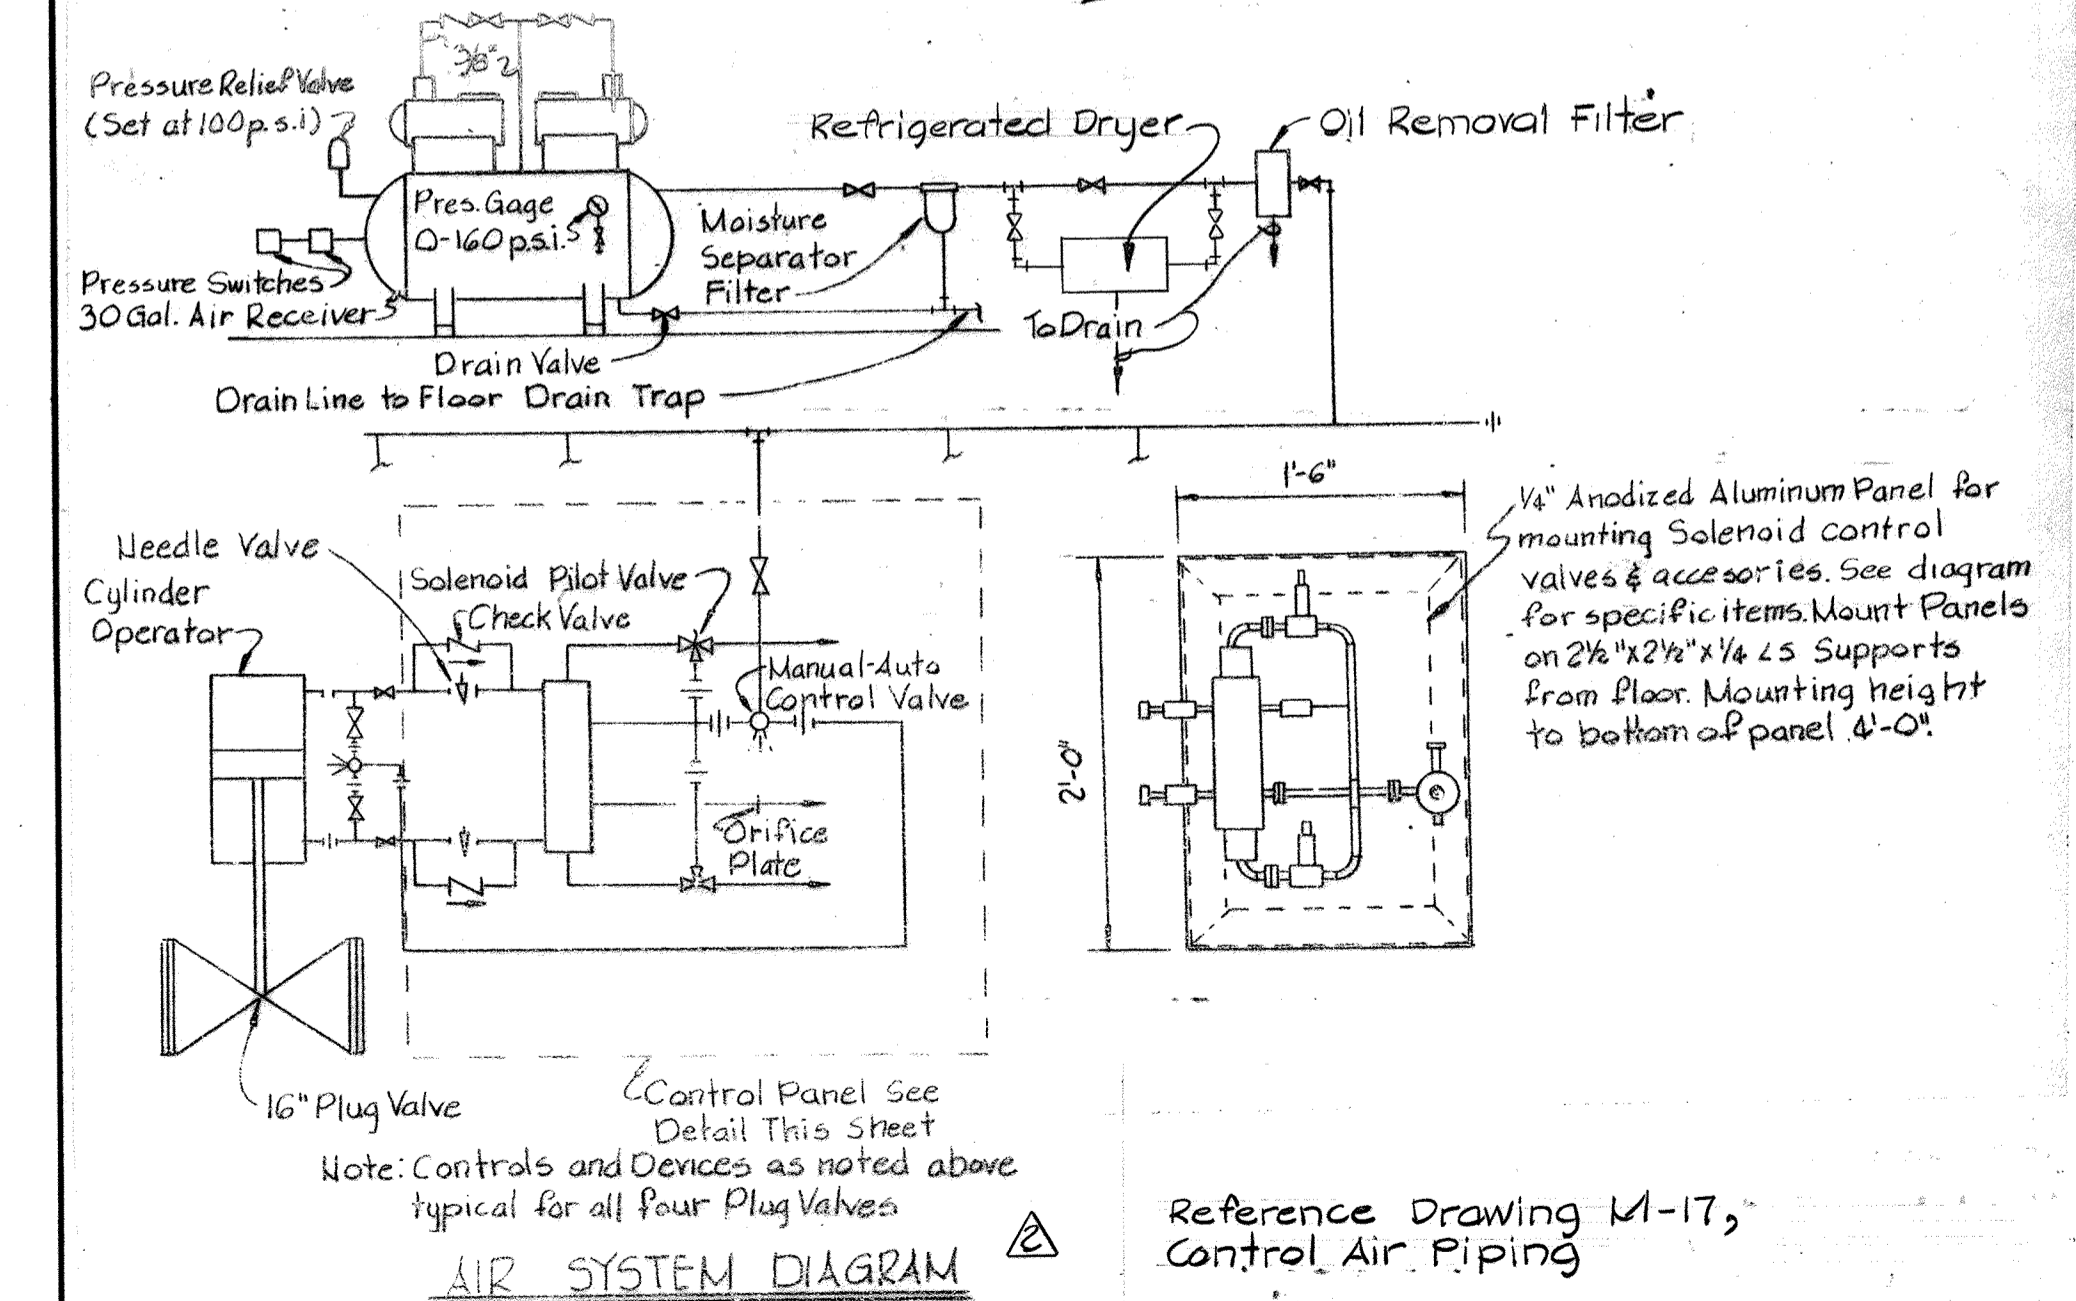 3/8"
Pressure Relief Valve
(Set at 100 p.s.i)
Refrigerated Dryer
Oil Removal Filter
Pres. Gage
0-160 p.s.i.
Moisture
Separator
Filter
Pressure Switches
30 Gal. Air Receiver
To Drain
Drain Valve
Drain Line to Floor Drain Trap
1'-6"
1/4" Anodized Aluminum Panel for
mounting Solenoid control
valves & accesories. See diagram
for specific items. Mount Panels
on 2½"x2½"x¼ ∠s Supports
from floor. Mounting height
to bottom of panel 4'-0".
Needle Valve
Cylinder
Operator
Solenoid Pilot Valve
Check Valve
Manual-Auto
Control Valve
2'-0"
Orifice
Plate
16" Plug Valve
Control Panel See
Detail This Sheet
Note: Controls and Devices as noted above
typical for all four Plug Valves
2
AIR SYSTEM DIAGRAM
Reference Drawing M-17,
Control Air Piping